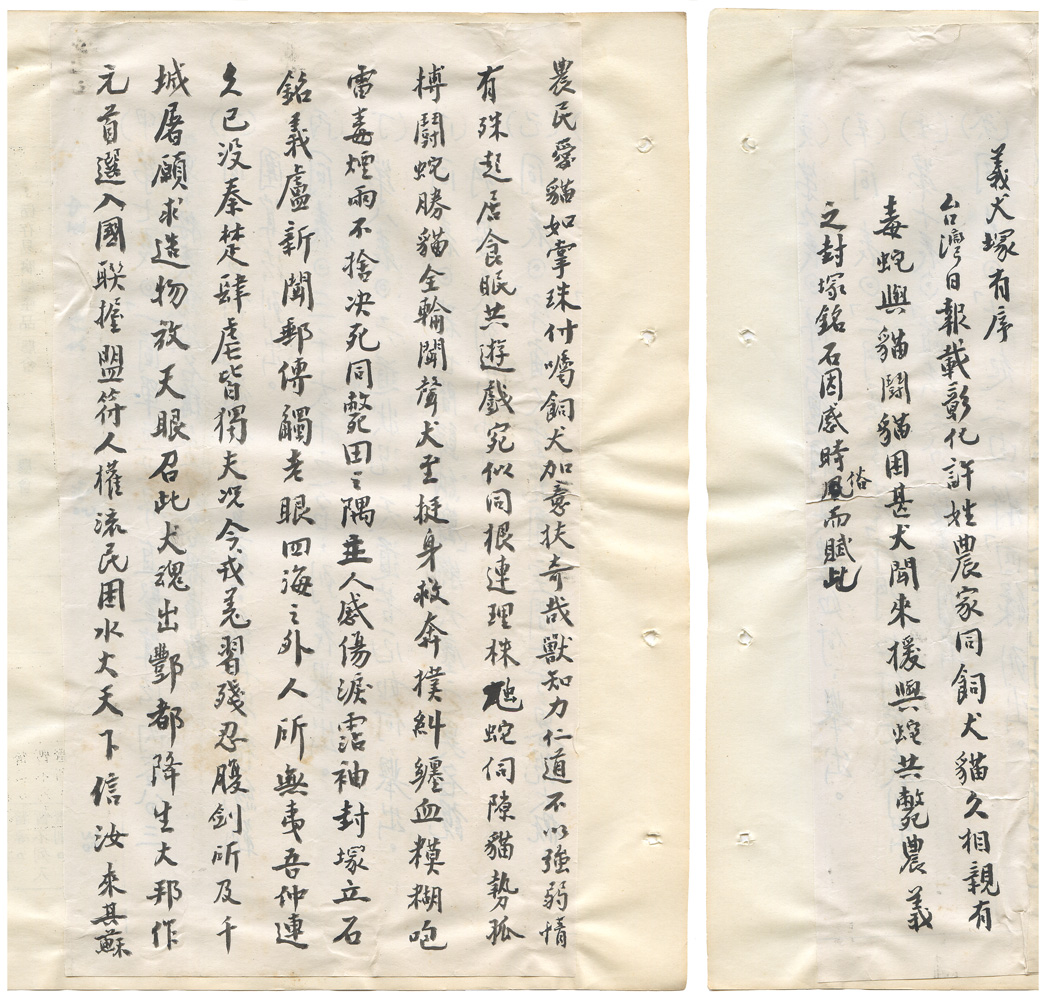 義犬塚有序
台灣日報載彰化許姓農家同飼犬貓久相親有
毒蛇與貓鬪貓困甚犬聞來援與蛇共斃農義
之封塚銘石因感時風俗而賦此
農民愛貓如掌珠付囑飼犬加意扶奇哉獸知力仁道不以強弱情
有殊起居食眠共遊戲宛似同根連理株虺蛇伺隙貓勢孤
搏鬪蛇勝貓全輸聞聲犬至挺身救奔撲糾纏血模糊咆
雷毒煙雨不捨決死同斃田之隅主人感傷淚霑袖封塚立石
銘義盧新聞郵傳觸老眼四海之外人所無夷吾仲連
久已没秦楚肆虐皆獨夫况今戎羌習殘忍腹劍所及千
城屠願求造物放天眼召此犬魂出酆都降生大邦作
元首選入國聯握盟符人權流民困水火天下信汝來其蘇